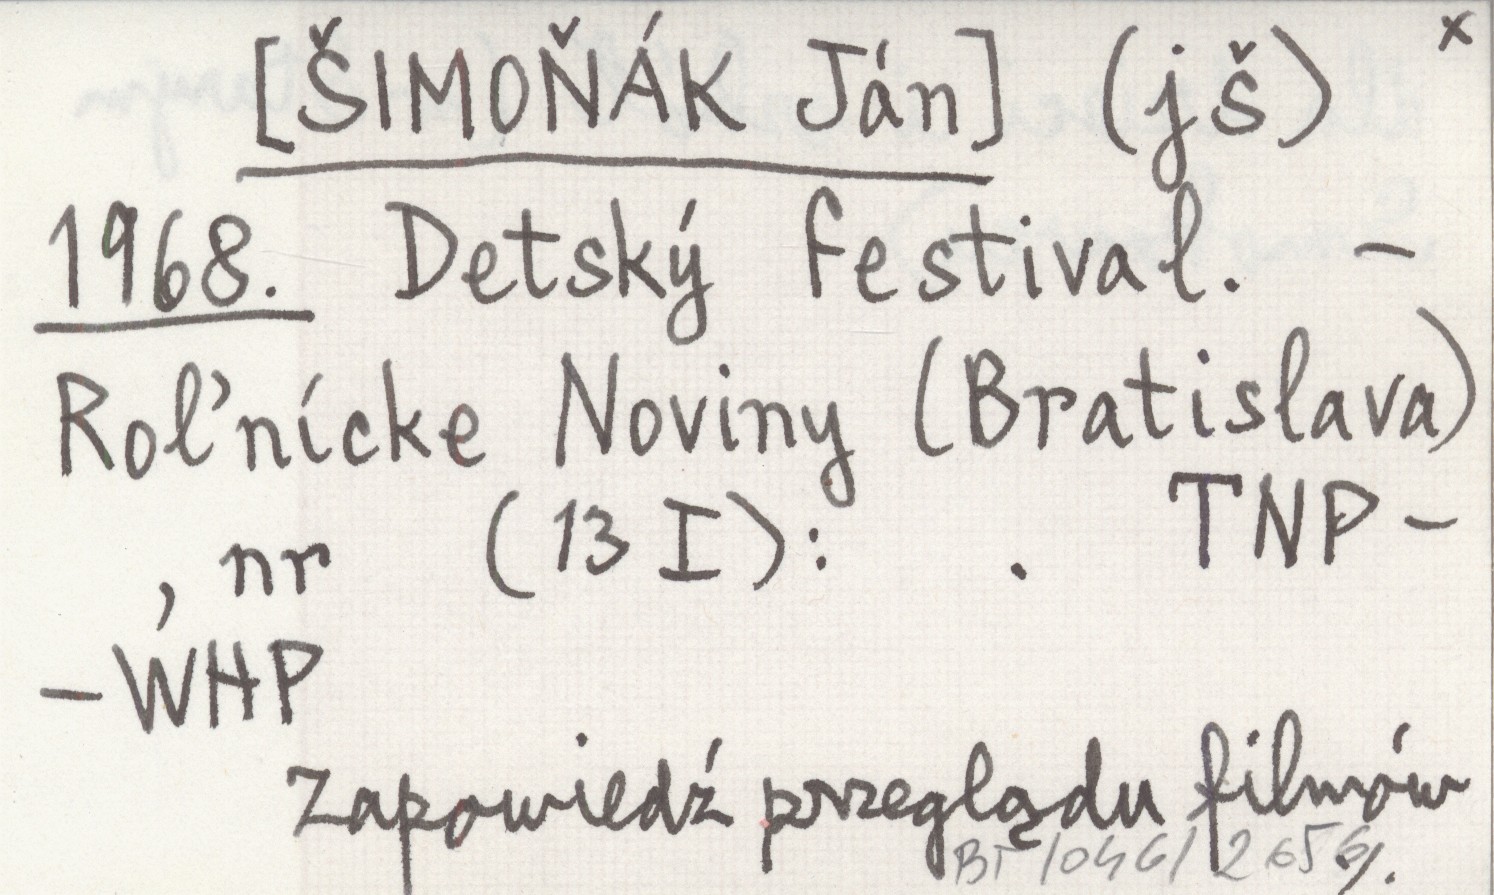 x
[ŠIMOŇÁK Ján] (jš)
1968. Detský festival. –
Roľnícke Noviny (Bratislava)
, nr (13 I): . TNP –
– WHP
Zapowiedź przeglądu filmów